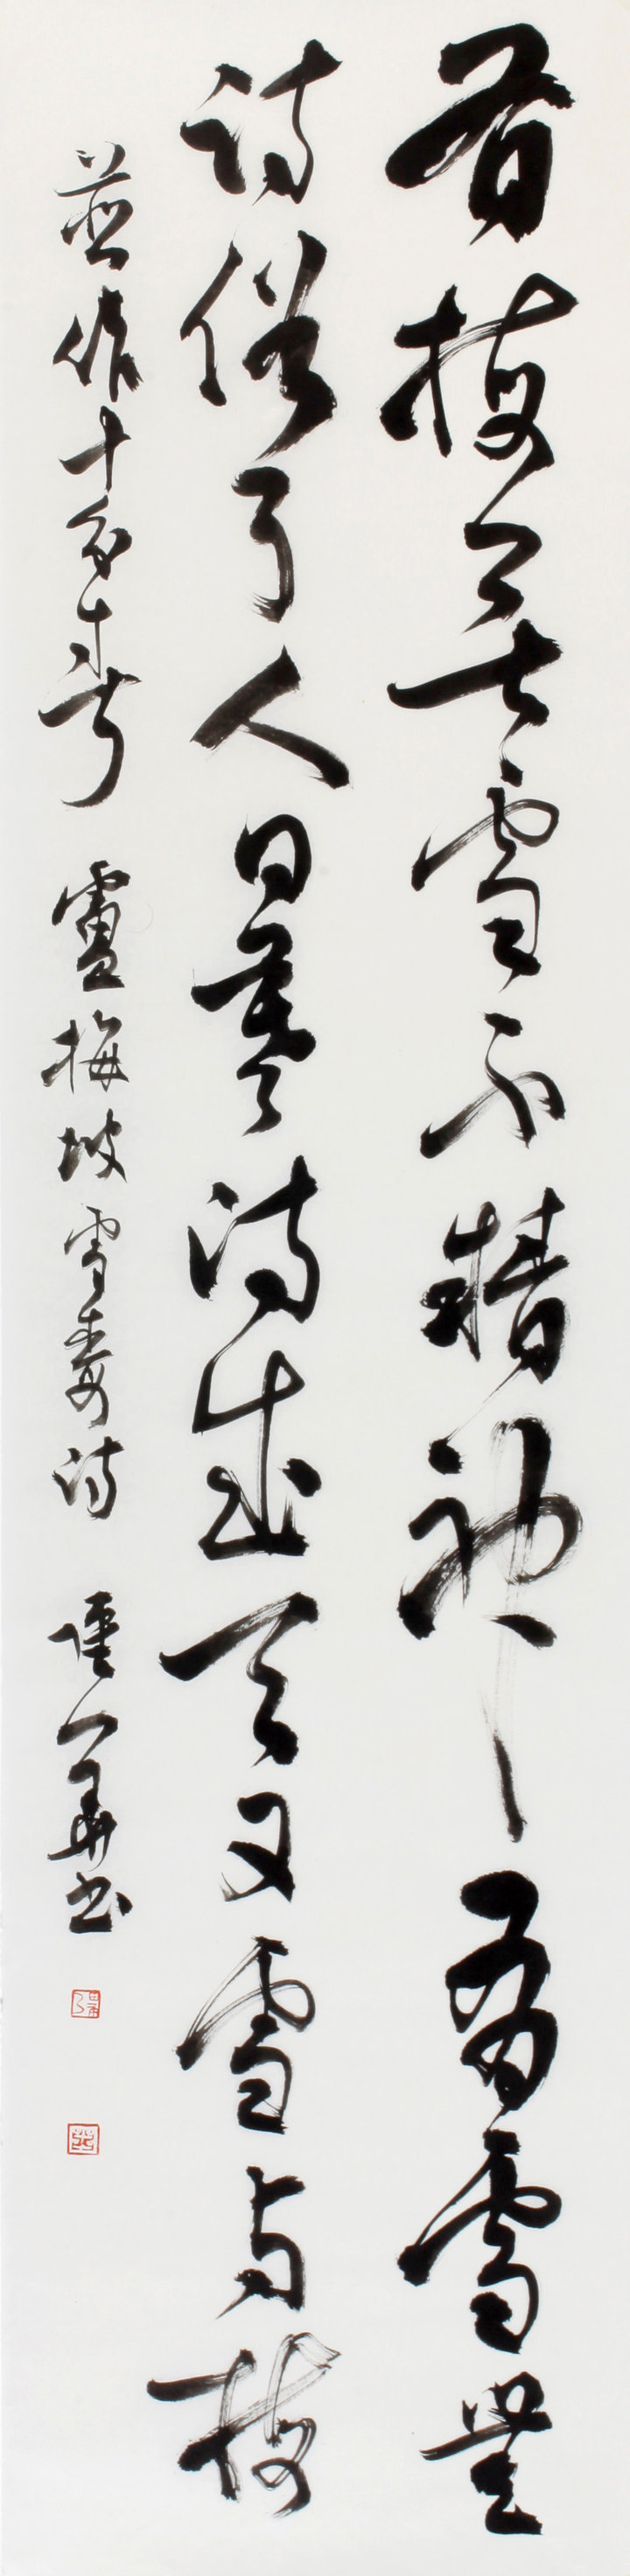 有梅无雪不精神有雪無
詩俗了人日暮詩成天又雪与梅
並作十分春 盧梅坡雪梅詩 書